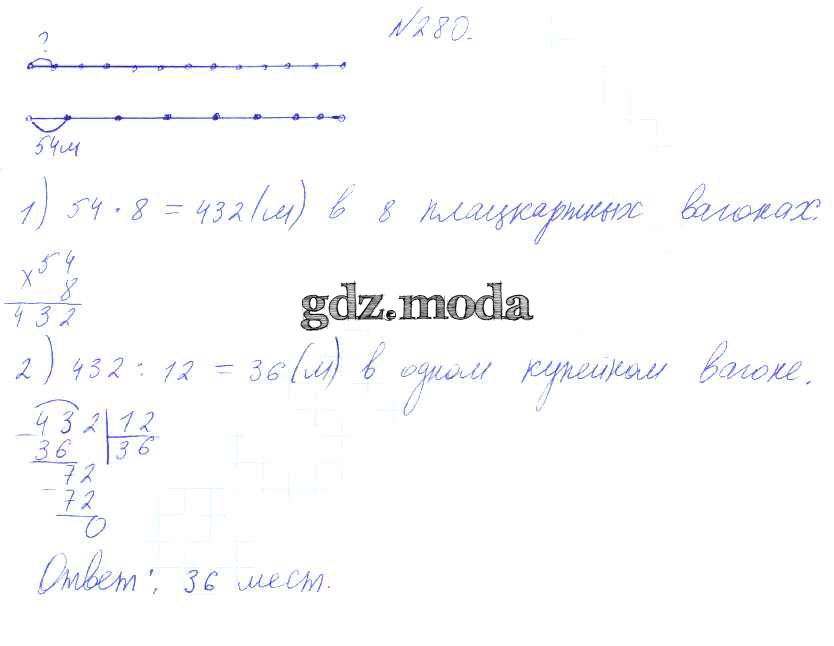 №280.
?
54м
1) 54 · 8 = 432 (м) в 8 плацкартных вагонах.
× 54
8
432
gdz.moda
2) 432 : 12 = 36 (м) в одном купейном вагоне.
- 432 | 12
36 | 36
- 72
72
0
Ответ: 36 мест.